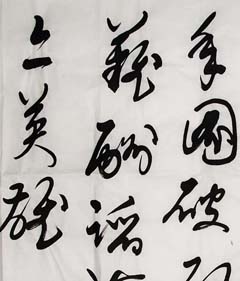 年圖破
難酬蹈
亦英雄